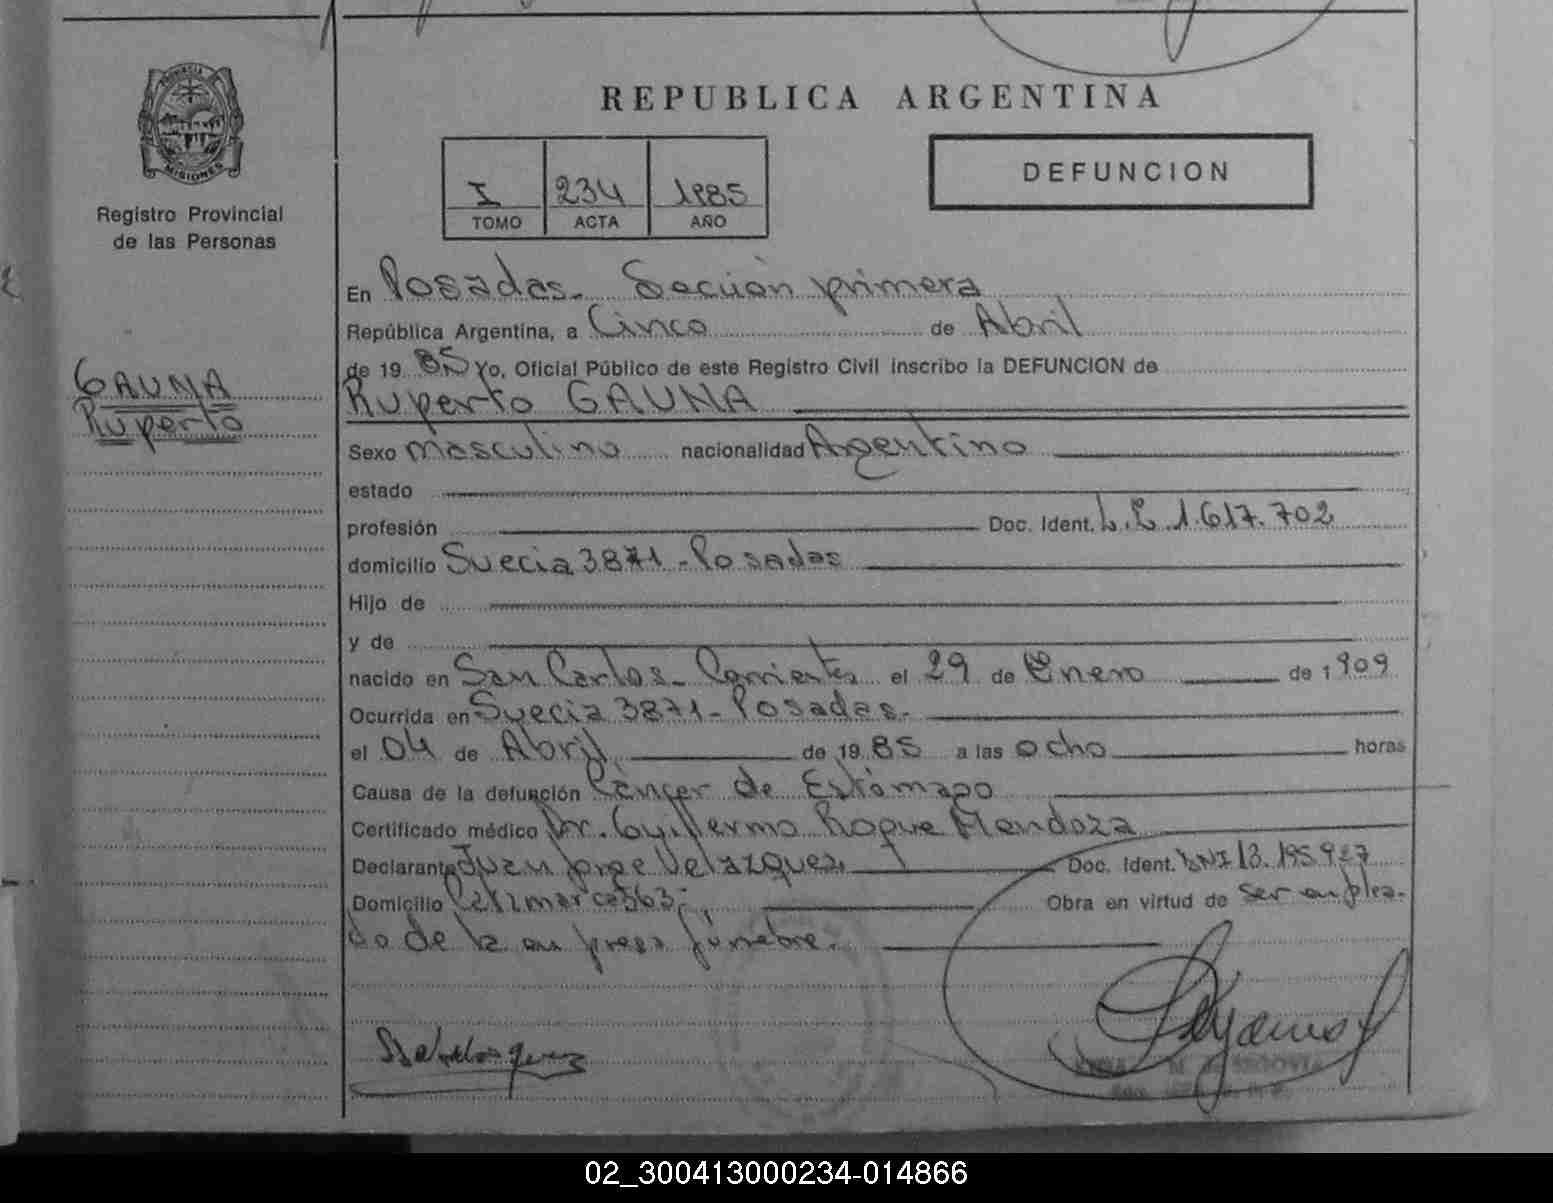 REPUBLICA ARGENTINA
PROVINCIA DE
MISIONES
Registro Provincial
de las Personas
I 234 1985
TOMO ACTA AÑO
DEFUNCION
En Posadas. Sección primera
República Argentina, a Cinco de Abril
de 19 85 Yo, Oficial Público de este Registro Civil inscribo la DEFUNCION de
GAUNA
Ruperto
Ruperto GAUNA
Sexo masculino nacionalidad Argentino
estado
profesión Doc. Ident. L.E 1.617.702
domicilio Suecia 3871 - Posadas
Hijo de
y de
nacido en San Carlos - Corrientes el 29 de Enero de 1909
Ocurrida en Suecia 3871 - Posadas.
el 04 de Abril de 19 85 a las ocho horas
Causa de la defunción Cáncer de Estómago
Certificado médico Dr. Guillermo Roque Mendoza
Declarante Juan Jorge Velazquez Doc. Ident. DNI 13.195.927
Domicilio Catamarca 563 Obra en virtud de ser emplea-
do de la empresa fúnebre.
M. SEGOVIA
02_300413000234-014866